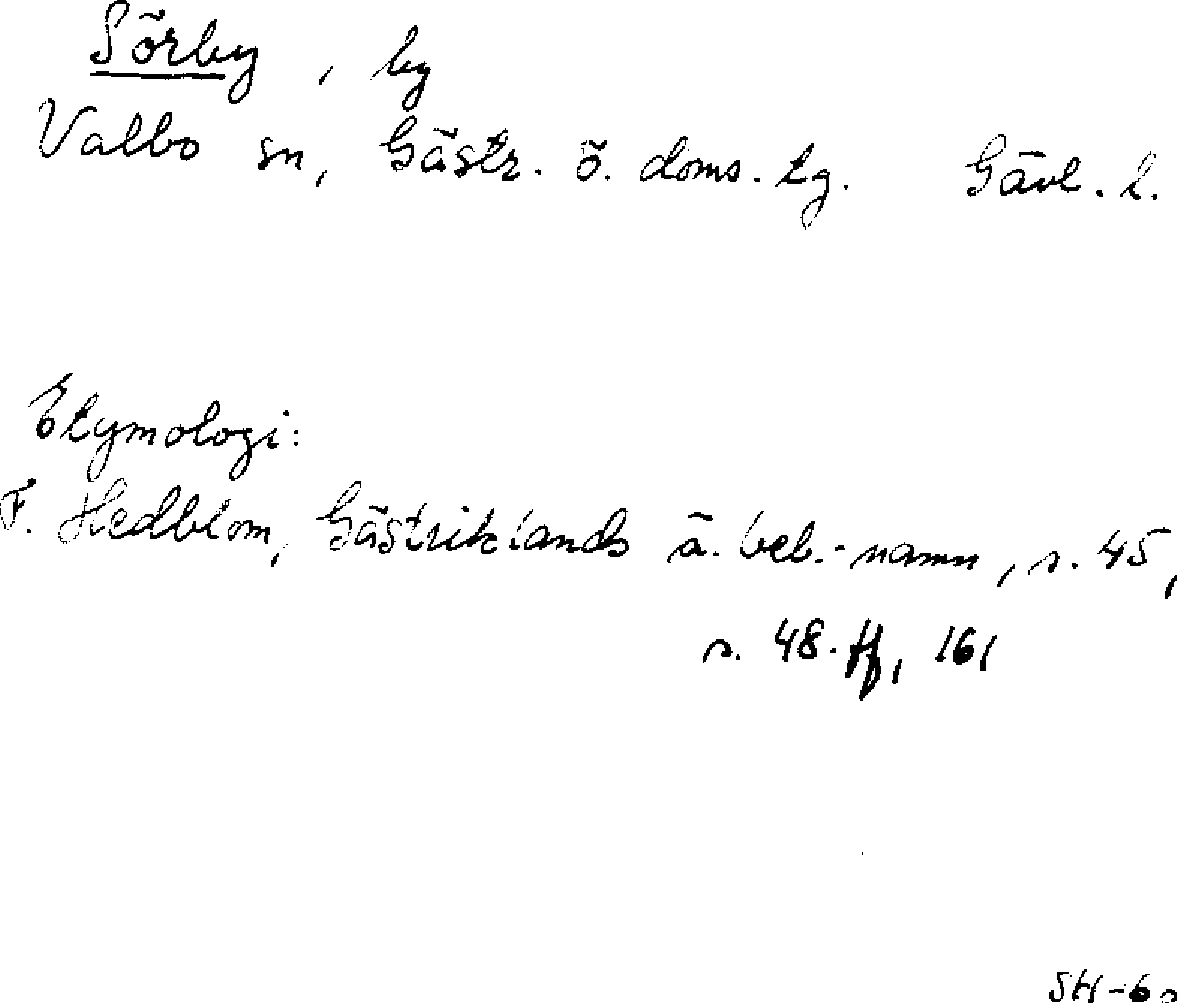 Sörby, by
Valbo sn, Gästr. ö. doms. tg. Gävl. l.
Etymologi:
F. Hedblom, Gästriklands ä. beb.-namn, s. 45,
s. 48 ff, 161